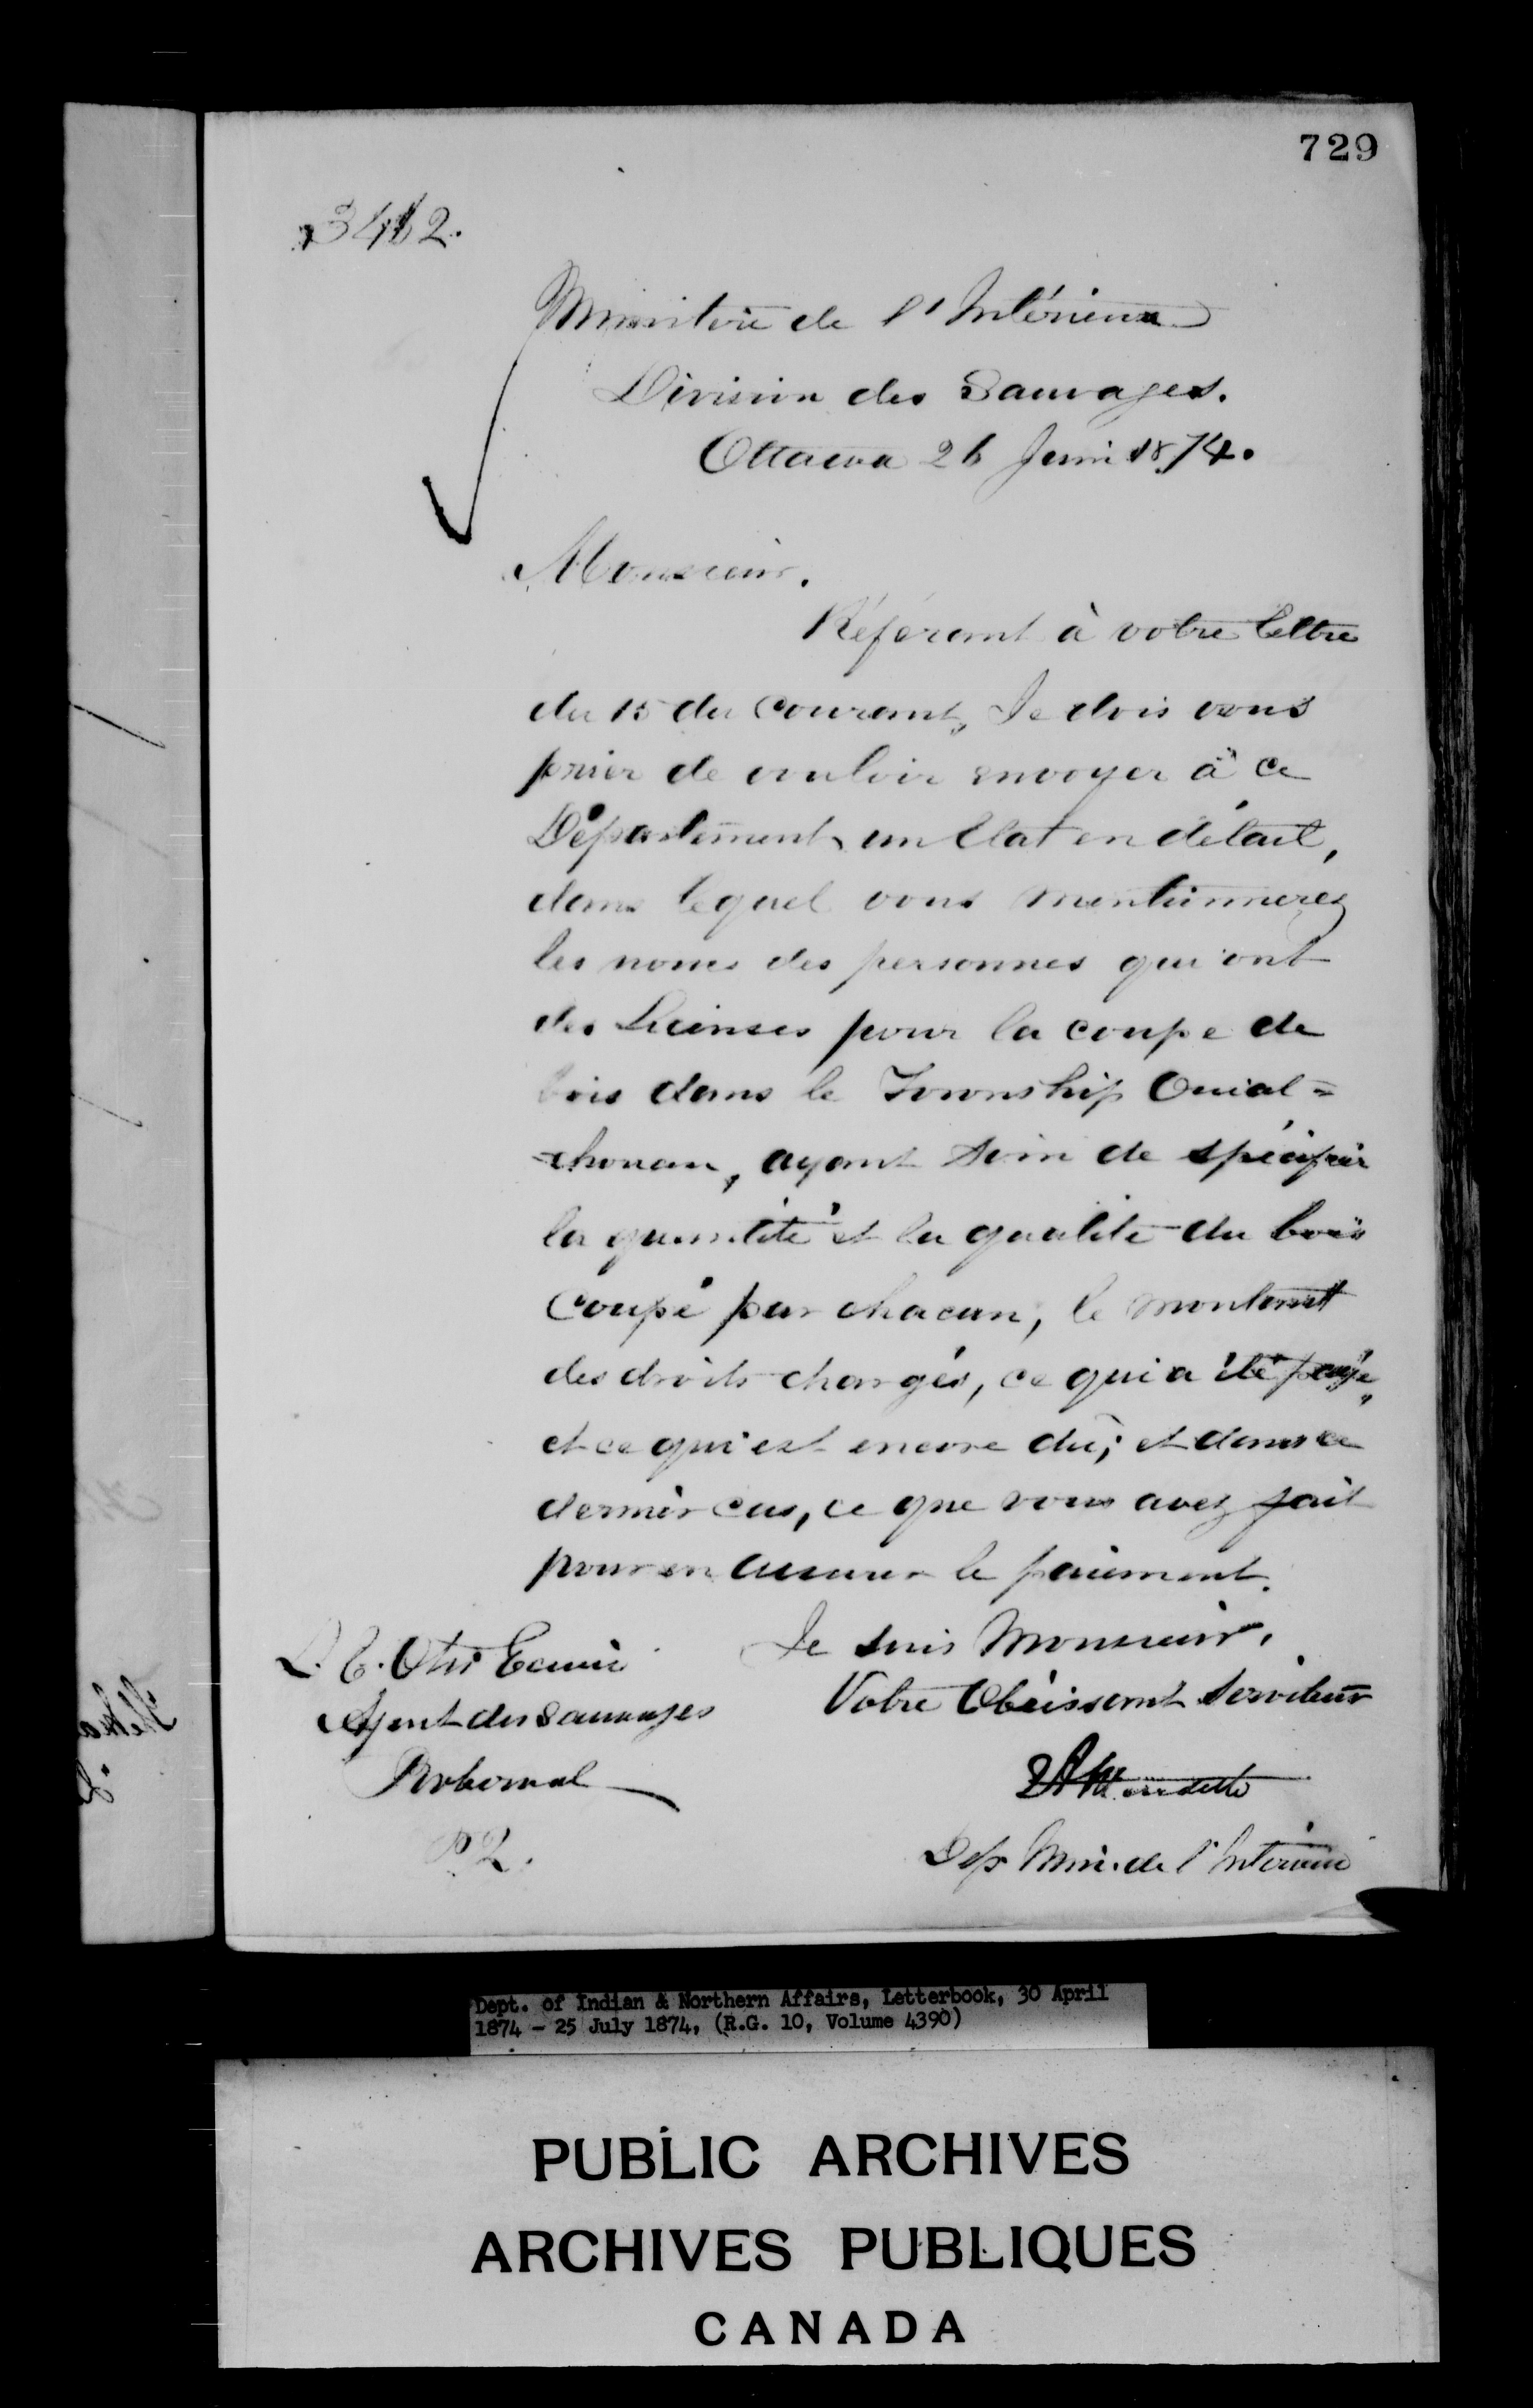 729
3462.
Ministère de l'Intérieur
Division des Sauvages.
Ottawa 26 Juin 1874.
Monsieur.
Référant à votre lettre
du 15 du Courant, Je dois vous
prier de vouloir envoyer à ce
Département, un Etat en détail,
dans lequel vous mentionnerez
les noms des personnes qui ont
des Licenses pour la coupe de
bois dans le Township Ouiat=
=chouan, ayant soin de spécifier
la quantité et la qualité du bois
Coupé par chacun, le montant
des droits chargés, ce qui a été payé,
et ce qui est encore dû; et dans ce
dernier cas, ce que vous avez fait
pour en assurer le paiement.
Je suis Monsieur,
Votre Obéissant Serviteur
L. E. Otis Ecuier
Agent des Sauvages
Roberval
P.Q.
Dep Min. de l'Intérieur
Dept. of Indian & Northern Affairs, Letterbook, 30 April
1874 - 25 July 1874, (R.G. 10, Volume 4390)
PUBLIC ARCHIVES
ARCHIVES PUBLIQUES
CANADA